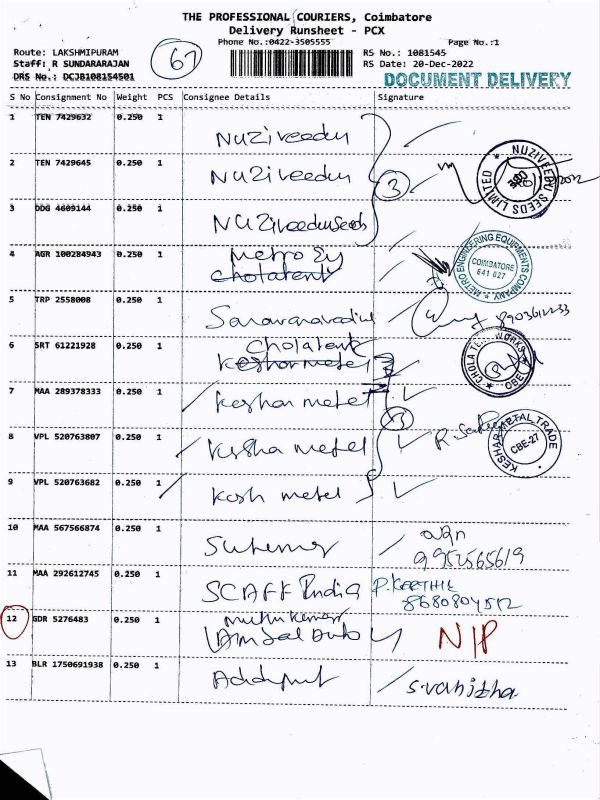 THE PROFESSIONAL COURIERS, Coimbatore
Delivery Runsheet - PCX
Phone No.:0422-3505555
Page No.:1
Route: LAKSHMIPURAM
67
RS No.: 1081545
Staff: R SUNDARARAJAN
RS Date: 20-Dec-2022
DRS No.: DCJB108154501
DOCUMENT DELIVERY
S No Consignment No Weight PCS Consignee Details Signature
1 TEN 7429632 0.250 1 Nuziveedu
2 TEN 7429645 0.250 1 Nuziveedu 3
NUZIVEEDU SEEDS LIMITED
3 DDG 4609144 0.250 1 Nuziveedu Seeds
4 AGR 100284943 0.250 1 Metro Eq
Cholatent
METRO ENGINEERING EQUIPMENTS COMPANY
COIMBATORE
641 027
5 TRP 2558008 0.250 1
6 SRT 61221928 0.250 1 Cholatent
Keshar metel
7 MAA 289378333 0.250 1 Keshar metel
8 VPL 520763807 0.250 1 Kesha metel
KESHAR METAL TRADE
CBE-27
9 VPL 520763682 0.250 1 Kesh metel
10 MAA 567566874 0.250 1
11 MAA 292612745 0.250 1 SCAFF India P. KEERTHIK
8680804512
12 GDR 5276483 0.250 1 Muthukumar
N/P
13 BLR 1750691938 0.250 1 S.Vanitha